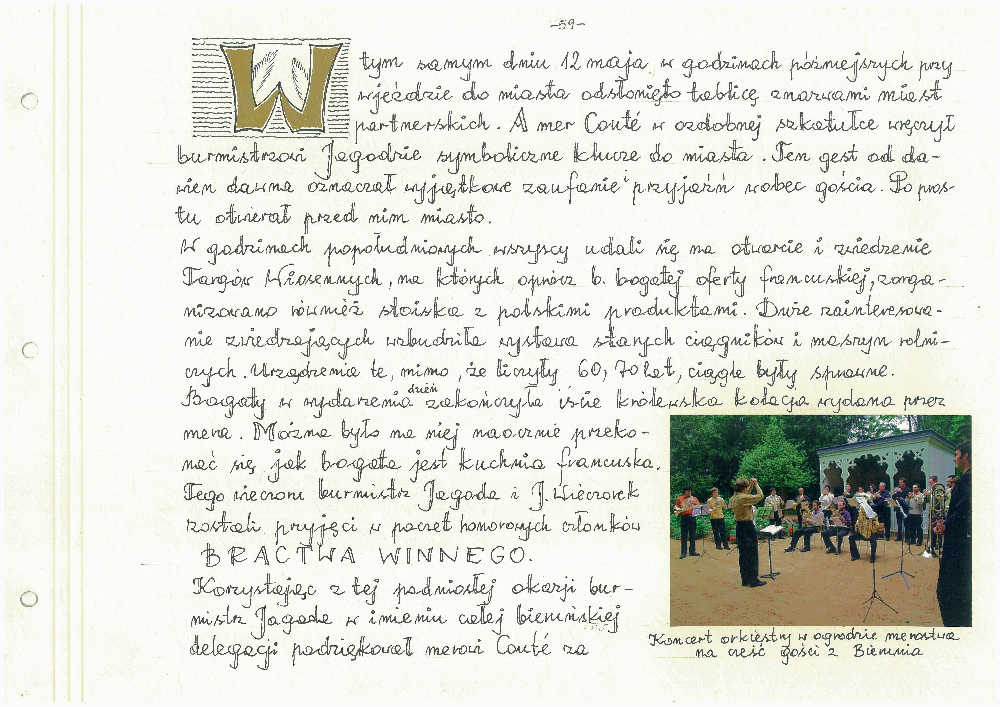 -59-
W tym samym dniu 12 maja w godzinach późniejszych przy
wjeździe do miasta odsłonięto tablicę z nazwami miast
partnerskich. A mer Couté w ozdobnej szkatułce wręczył
burmistrzowi Jagodzie symboliczne klucze do miasta. Ten gest od da-
wien dawna oznaczał wyjątkowe zaufanie i przyjaźń wobec gościa. Po pros-
tu otwierał przed nim miasto.
W godzinach popołudniowych wszyscy udali się na otwarcie i zwiedzenie
Targów Wiosennych, na których oprócz b. bogatej oferty francuskiej, zorga-
nizowano również stoiska z polskimi produktami. Duże zainteresowa-
nie zwiedzających wzbudziła wystawa starych ciągników i maszyn rolni-
czych. Urządzenia te, mimo, że liczyły 60, 70 lat, ciągle były sprawne.
Bogaty w wydarzenia dzień zakończyła iście królewska kolacja wydana przez
mera. Można było na niej naocznie przeko-
nać się, jak bogata jest kuchnia francuska.
Tego wieczoru burmistrz Jagoda i J. Wieczorek
zostali przyjęci w poczet honorowych członków
BRACTWA WINNEGO.
Korzystając z tej podniosłej okazji bur-
mistrz Jagoda w imieniu całej bieruńskiej
delegacji podziękował merowi Couté za
Koncert orkiestry w ogrodzie merostwa
na cześć gości z Bierunia